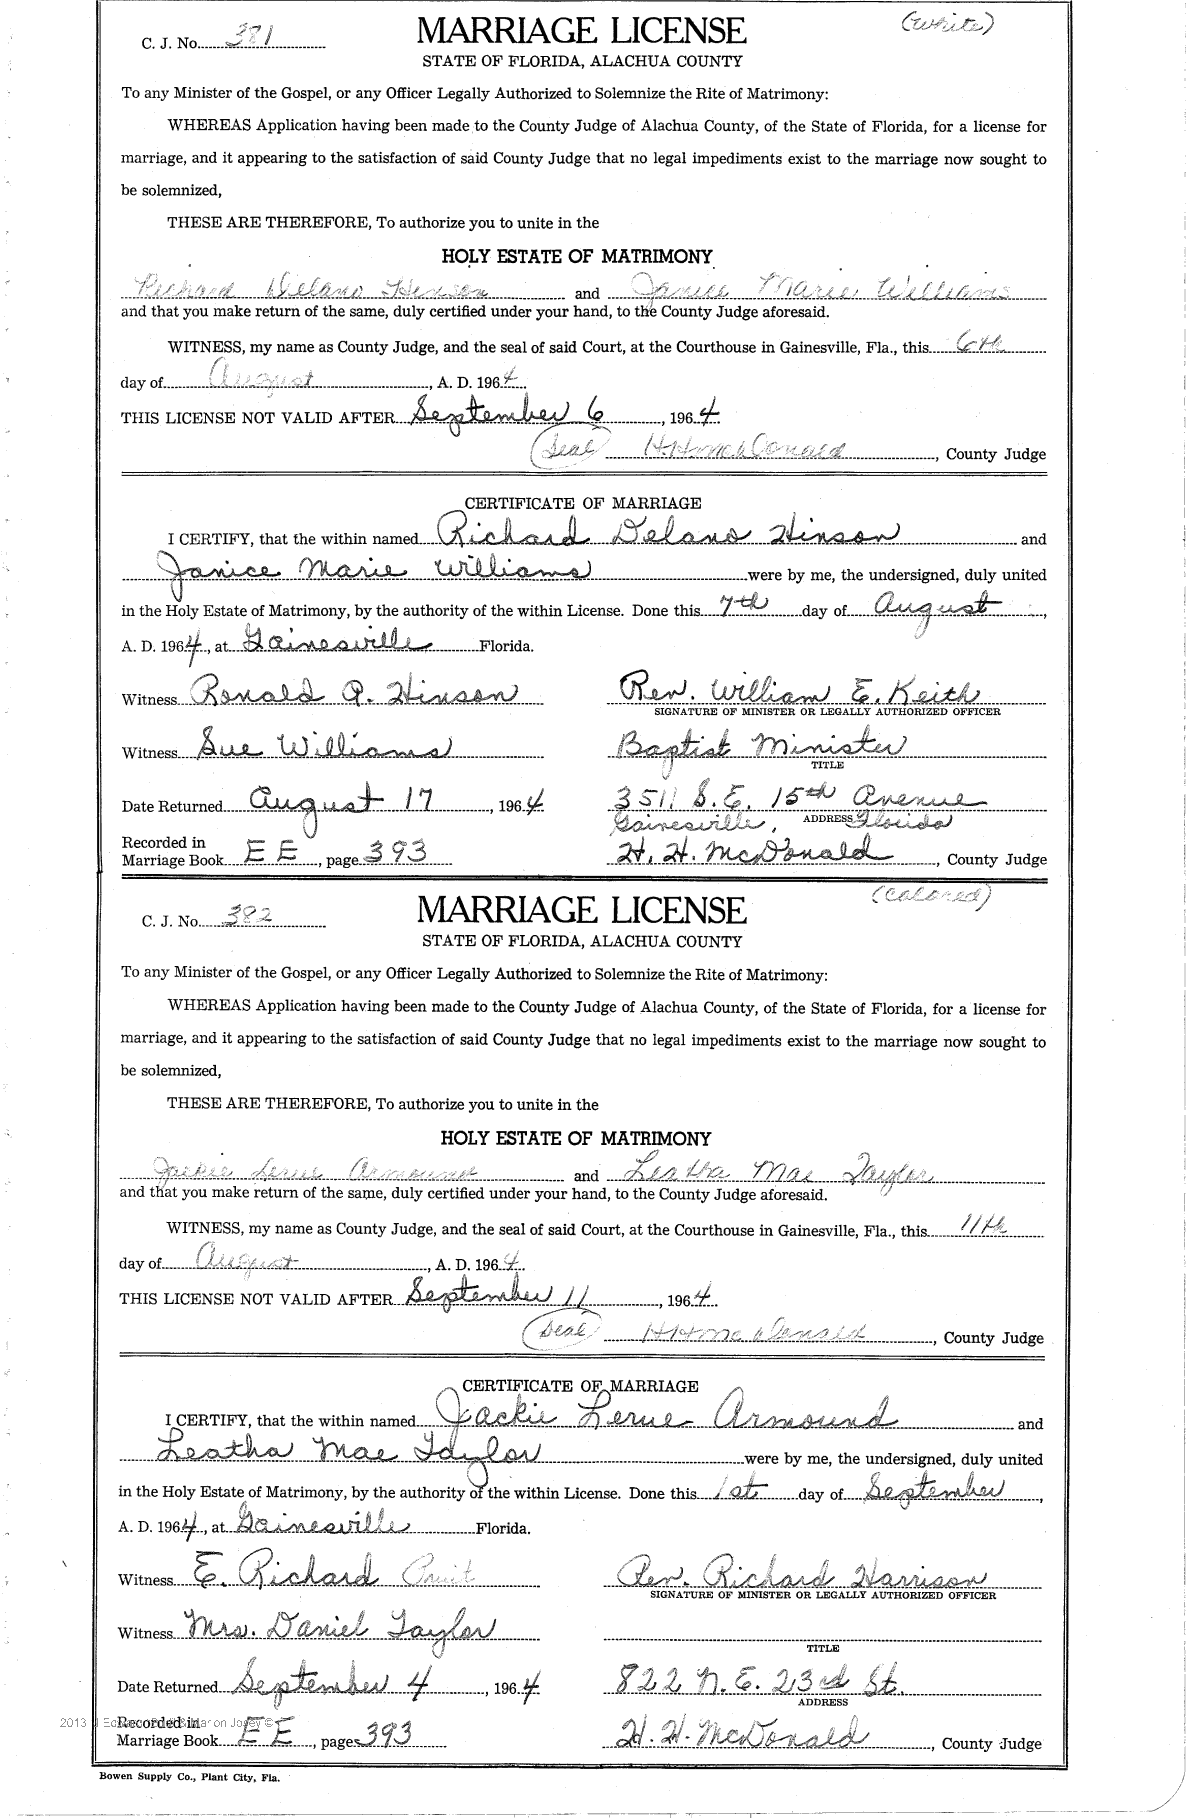 (White)
C. J. No. 381 MARRIAGE LICENSE
STATE OF FLORIDA, ALACHUA COUNTY
To any Minister of the Gospel, or any Officer Legally Authorized to Solemnize the Rite of Matrimony:
WHEREAS Application having been made to the County Judge of Alachua County, of the State of Florida, for a license for
marriage, and it appearing to the satisfaction of said County Judge that no legal impediments exist to the marriage now sought to
be solemnized,
THESE ARE THEREFORE, To authorize you to unite in the
HOLY ESTATE OF MATRIMONY
Richard Delano Henson and Janice Marie Williams
and that you make return of the same, duly certified under your hand, to the County Judge aforesaid.
WITNESS, my name as County Judge, and the seal of said Court, at the Courthouse in Gainesville, Fla., this 6th
day of August, A. D. 1964.
THIS LICENSE NOT VALID AFTER September 6, 1964.
(Seal) H.H. McDonald, County Judge
CERTIFICATE OF MARRIAGE
I CERTIFY, that the within named Richard Delano Hinson and
Janice Marie Williams were by me, the undersigned, duly united
in the Holy Estate of Matrimony, by the authority of the within License. Done this 7th day of August,
A. D. 1964, at Gainesville Florida.
Witness Ronald A. Hinson Rev. William E. Keith
SIGNATURE OF MINISTER OR LEGALLY AUTHORIZED OFFICER
Witness Sue Williams Baptist Minister
TITLE
Date Returned August 17, 1964 3511 S.E. 15th Avenue
Gainesville, ADDRESS Florida
Recorded in
Marriage Book EE, page 393 H. H. McDonald, County Judge
(Colored)
C. J. No. 382 MARRIAGE LICENSE
STATE OF FLORIDA, ALACHUA COUNTY
To any Minister of the Gospel, or any Officer Legally Authorized to Solemnize the Rite of Matrimony:
WHEREAS Application having been made to the County Judge of Alachua County, of the State of Florida, for a license for
marriage, and it appearing to the satisfaction of said County Judge that no legal impediments exist to the marriage now sought to
be solemnized,
THESE ARE THEREFORE, To authorize you to unite in the
HOLY ESTATE OF MATRIMONY
Jackie Lerue Armound and Leatha Mae Taylor
and that you make return of the same, duly certified under your hand, to the County Judge aforesaid.
WITNESS, my name as County Judge, and the seal of said Court, at the Courthouse in Gainesville, Fla., this 11th
day of August, A. D. 1964.
THIS LICENSE NOT VALID AFTER September 11, 1964.
(Seal) H H McDonald, County Judge
CERTIFICATE OF MARRIAGE
I CERTIFY, that the within named Jackie Lerue Armound and
Leatha Mae Taylor were by me, the undersigned, duly united
in the Holy Estate of Matrimony, by the authority of the within License. Done this 1st day of September,
A. D. 1964, at Gainesville Florida.
Witness E. Richard Pruit Rev. Richard Harrison
SIGNATURE OF MINISTER OR LEGALLY AUTHORIZED OFFICER
Witness Mrs. Daniel Taylor
TITLE
Date Returned September 4, 1964. 822 N.E. 23rd St.
ADDRESS
2013
Recorded in
Marriage Book EE, page 393 H. H. McDonald, County Judge
Bowen Supply Co., Plant City, Fla.